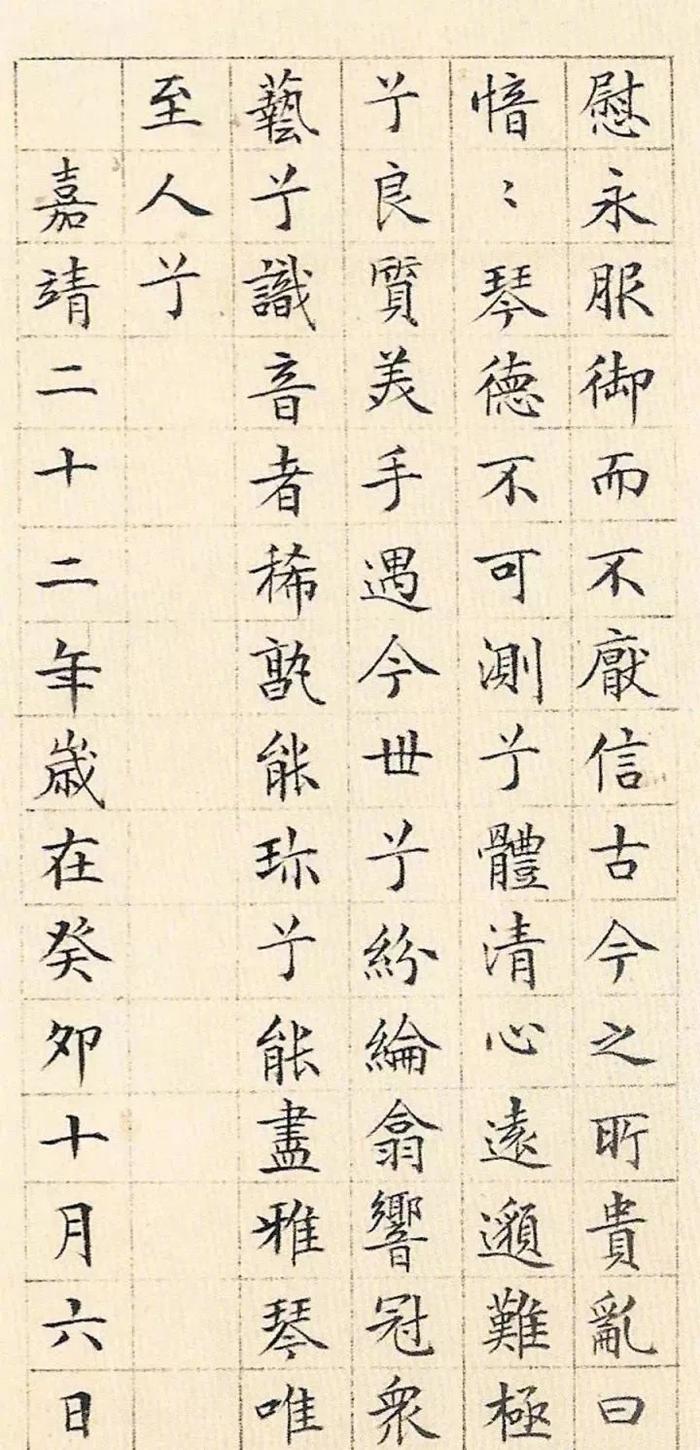 慰永服御而不厭信古今之所貴亂曰
愔〻琴德不可測兮體清心遠邈難極
兮良質美手遇今世兮紛綸翕響冠衆
藝兮識音者稀孰能珎兮能盡雅琴唯
至人兮
嘉靖二十二年歳在癸卯十月六日